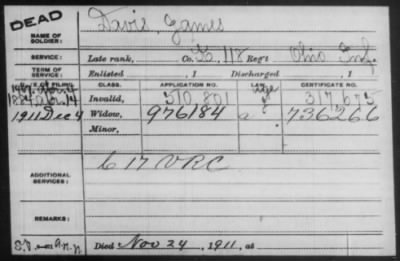 DEAD
NAME OF SOLDIER: Davis, James
SERVICE: Late rank, Co. K, 118 Reg't Ohio Inf.
TERM OF SERVICE: Enlisted , 1 Discharged , 1
DATE OF FILING. CLASS. APPLICATION NO. LAW. CERTIFICATE NO.
1884 Invalid, 510,801 317,675
1911 Dec 4 Widow, 976184 a 736266
Minor,
ADDITIONAL SERVICES: C 17 VRC
REMARKS:
Died Nov 24, 1911, at